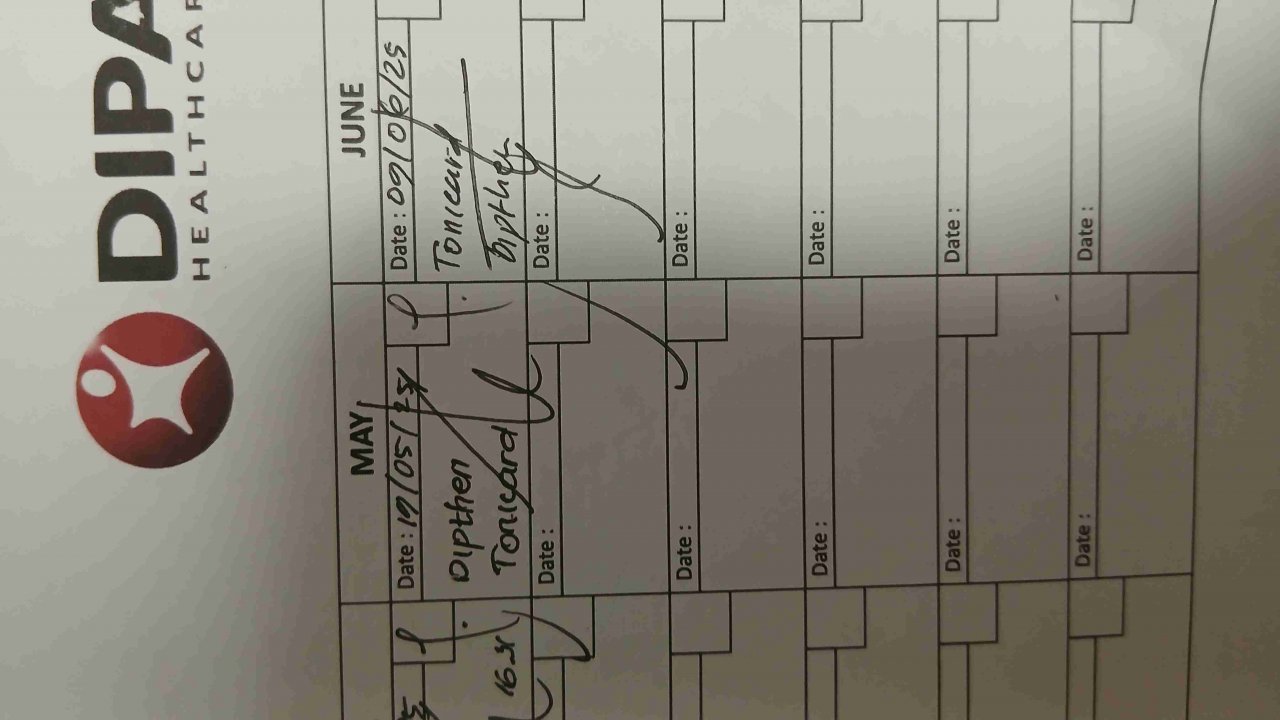 DIPA
HEALTHCAR
MAY
JUNE
Date : 19/05/25
Date : 09/06/25
Dipthen
Tonicard
Tonicard
Dipther
16.
Date :
Date :
Date :
Date :
Date :
Date :
Date :
Date :
Date :
Date :